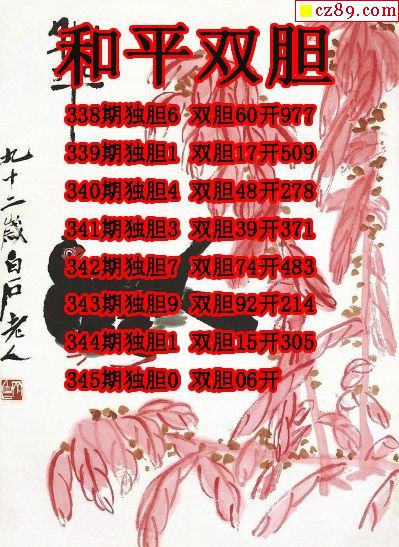 cz89.com
和平双胆
338期独胆6 双胆60开977
339期独胆1 双胆17开509
340期独胆4 双胆48开278
341期独胆3 双胆39开371
342期独胆7 双胆74开483
343期独胆9 双胆92开214
344期独胆1 双胆15开305
345期独胆0 双胆06开
九十二岁白石老人